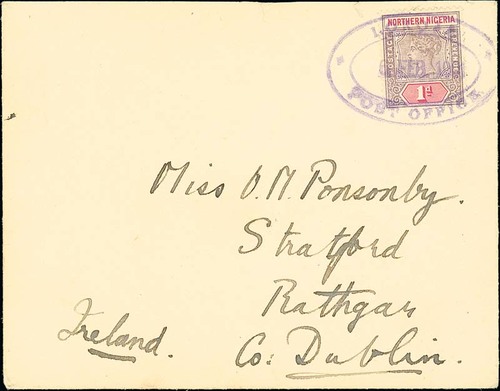 NORTHERN NIGERIA
POSTAGE
REVENUE
1d
POST OFFICE
Miss O. M. Ponsonby.
Stratford
Rathgar
Co: Dublin.
Ireland.